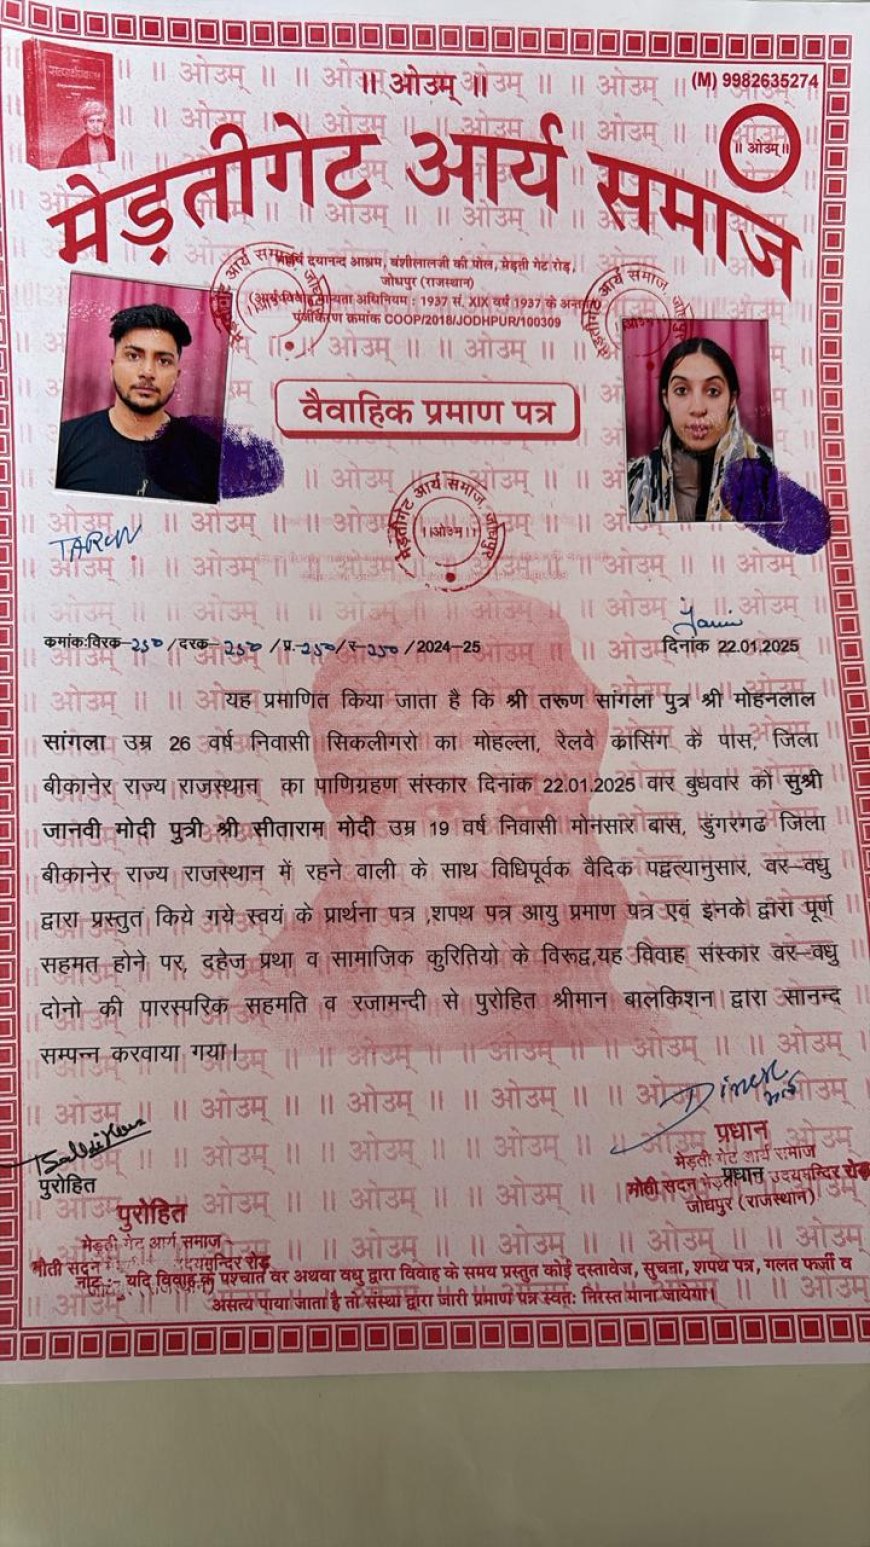 || ओउम् ||
(M) 9982635274
|| ओउम् ||
मेड़तीगेट आर्य समाज
महर्षि दयानन्द आश्रम, बंशीलालजी की पोल, मेड़ती गेट रोड़,
जोधपुर (राजस्थान)
(आर्य विवाह मान्यता अधिनियम : 1937 सं. XIX वर्ष 1937 के अन्तर्गत)
पंजीकरण क्रमांक COOP/2018/JODHPUR/100309
वैवाहिक प्रमाण पत्र
मेड़तीगेट आर्य समाज, जोधपुर
||ओउम||
TARUN
क्रमांकःविरक-250/दरक-250/प्र.-250/र-250/2024-25
दिनांक 22.01.2025
यह प्रमाणित किया जाता है कि श्री तरूण सांगला पुत्र श्री मोहनलाल
सांगला उम्र 26 वर्ष निवासी सिकलीगरो का मोहल्ला, रेलवे क्रासिंग के पास, जिला
बीकानेर राज्य राजस्थान का पाणिग्रहण संस्कार दिनांक 22.01.2025 वार बुधवार को सुश्री
जानवी मोदी पुत्री श्री सीताराम मोदी उम्र 19 वर्ष निवासी मोनसार बास, डुंगरगढ जिला
बीकानेर राज्य राजस्थान में रहने वाली के साथ विधिपूर्वक वैदिक पद्वत्यानुसार, वर–वधु
द्वारा प्रस्तुत किये गये स्वयं के प्रार्थना पत्र ,शपथ पत्र आयु प्रमाण पत्र एवं इनके द्वारा पूर्ण
सहमत होने पर, दहेज प्रथा व सामाजिक कुरितियो के विरूद्व,यह विवाह संस्कार वर–वधु
दोनो की पारस्परिक सहमति व रजामन्दी से पुरोहित श्रीमान बालकिशन द्वारा सानन्द
सम्पन्न करवाया गया।
पुरोहित
पुरोहित
मेड़ती गेट आर्य समाज
मोती सदन
उदयमन्दिर रोड़
प्रधान
मेड़ती गेट आर्य समाज
प्रधान
मोती सदन मेड़ती गेट उदयमन्दिर रोड़
जोधपुर (राजस्थान)
नोट :- यदि विवाह के पश्चात वर अथवा वधु द्वारा विवाह के समय प्रस्तुत कोई दस्तावेज, सुचना, शपथ पत्र, गलत फर्जी व
असत्य पाया जाता है तो संस्था द्वारा जारी प्रमाण पत्र स्वतः निरस्त माना जायेगा।